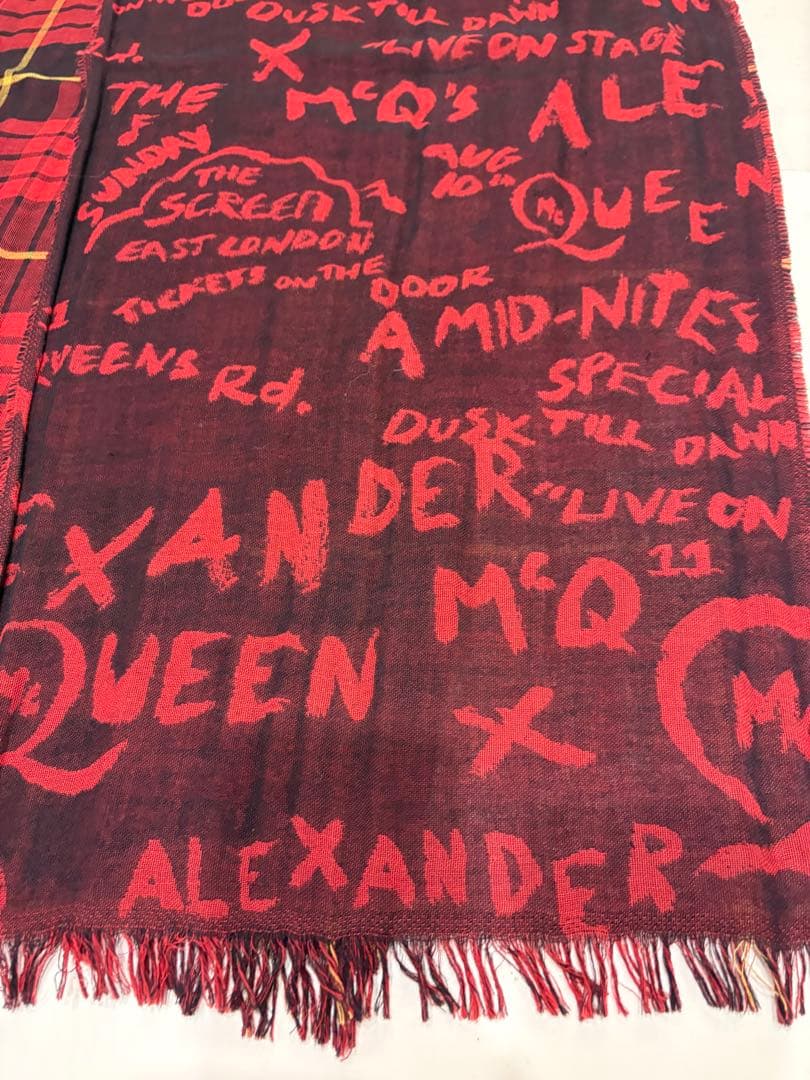 DUSK TILL DAWN
Rd. X "LIVE ON STAGE
THE McQ'S ALE
SUNDAY AUG
THE 10TH Mc QUEEN
SCREEN
EAST LONDON
TICKETS ON THE DOOR
A MID-NITES
QUEENS Rd. SPECIAL
DUSK TILL DAWN
XANDER "LIVE ON
McQ 11
McQUEEN X Mc
ALEXANDER